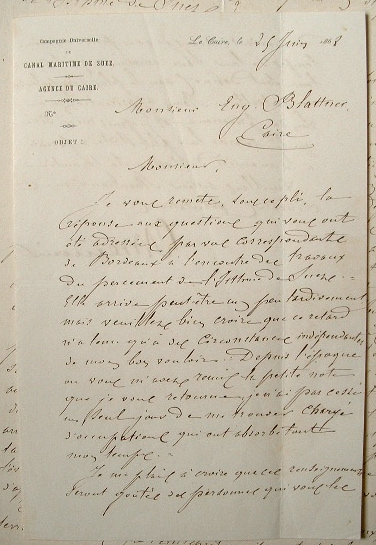 Compagnie Universelle
DU
CANAL MARITIME DE SUEZ.
AGENCE DU CAIRE.
N°
OBJET :
Le Caire, le 25 Juin 186
Monsieur Eug. Blattner
Caire
Monsieur,
Je vous remets, sous ce pli, la
réponse aux questions qui vous ont
été adressées par vos correspondants
de Bordeaux à l'encontre des travaux
du percement de l'Isthme de Suez.
Elle arrive peut-être un peu tardivement
mais veuillez bien croire que ce retard
n'a tenu qu'à des circonstances indépendantes
de mon bon vouloir. Depuis l'époque
où vous m'avez remis la petite note
que je vous retourne, je n'ai pas cessé
un seul jour de me trouver chargé
d'occupations qui ont absorbé tout
mon temps.
Je me plais à croire que ces renseignements
seront goûtés des personnes qui vous les